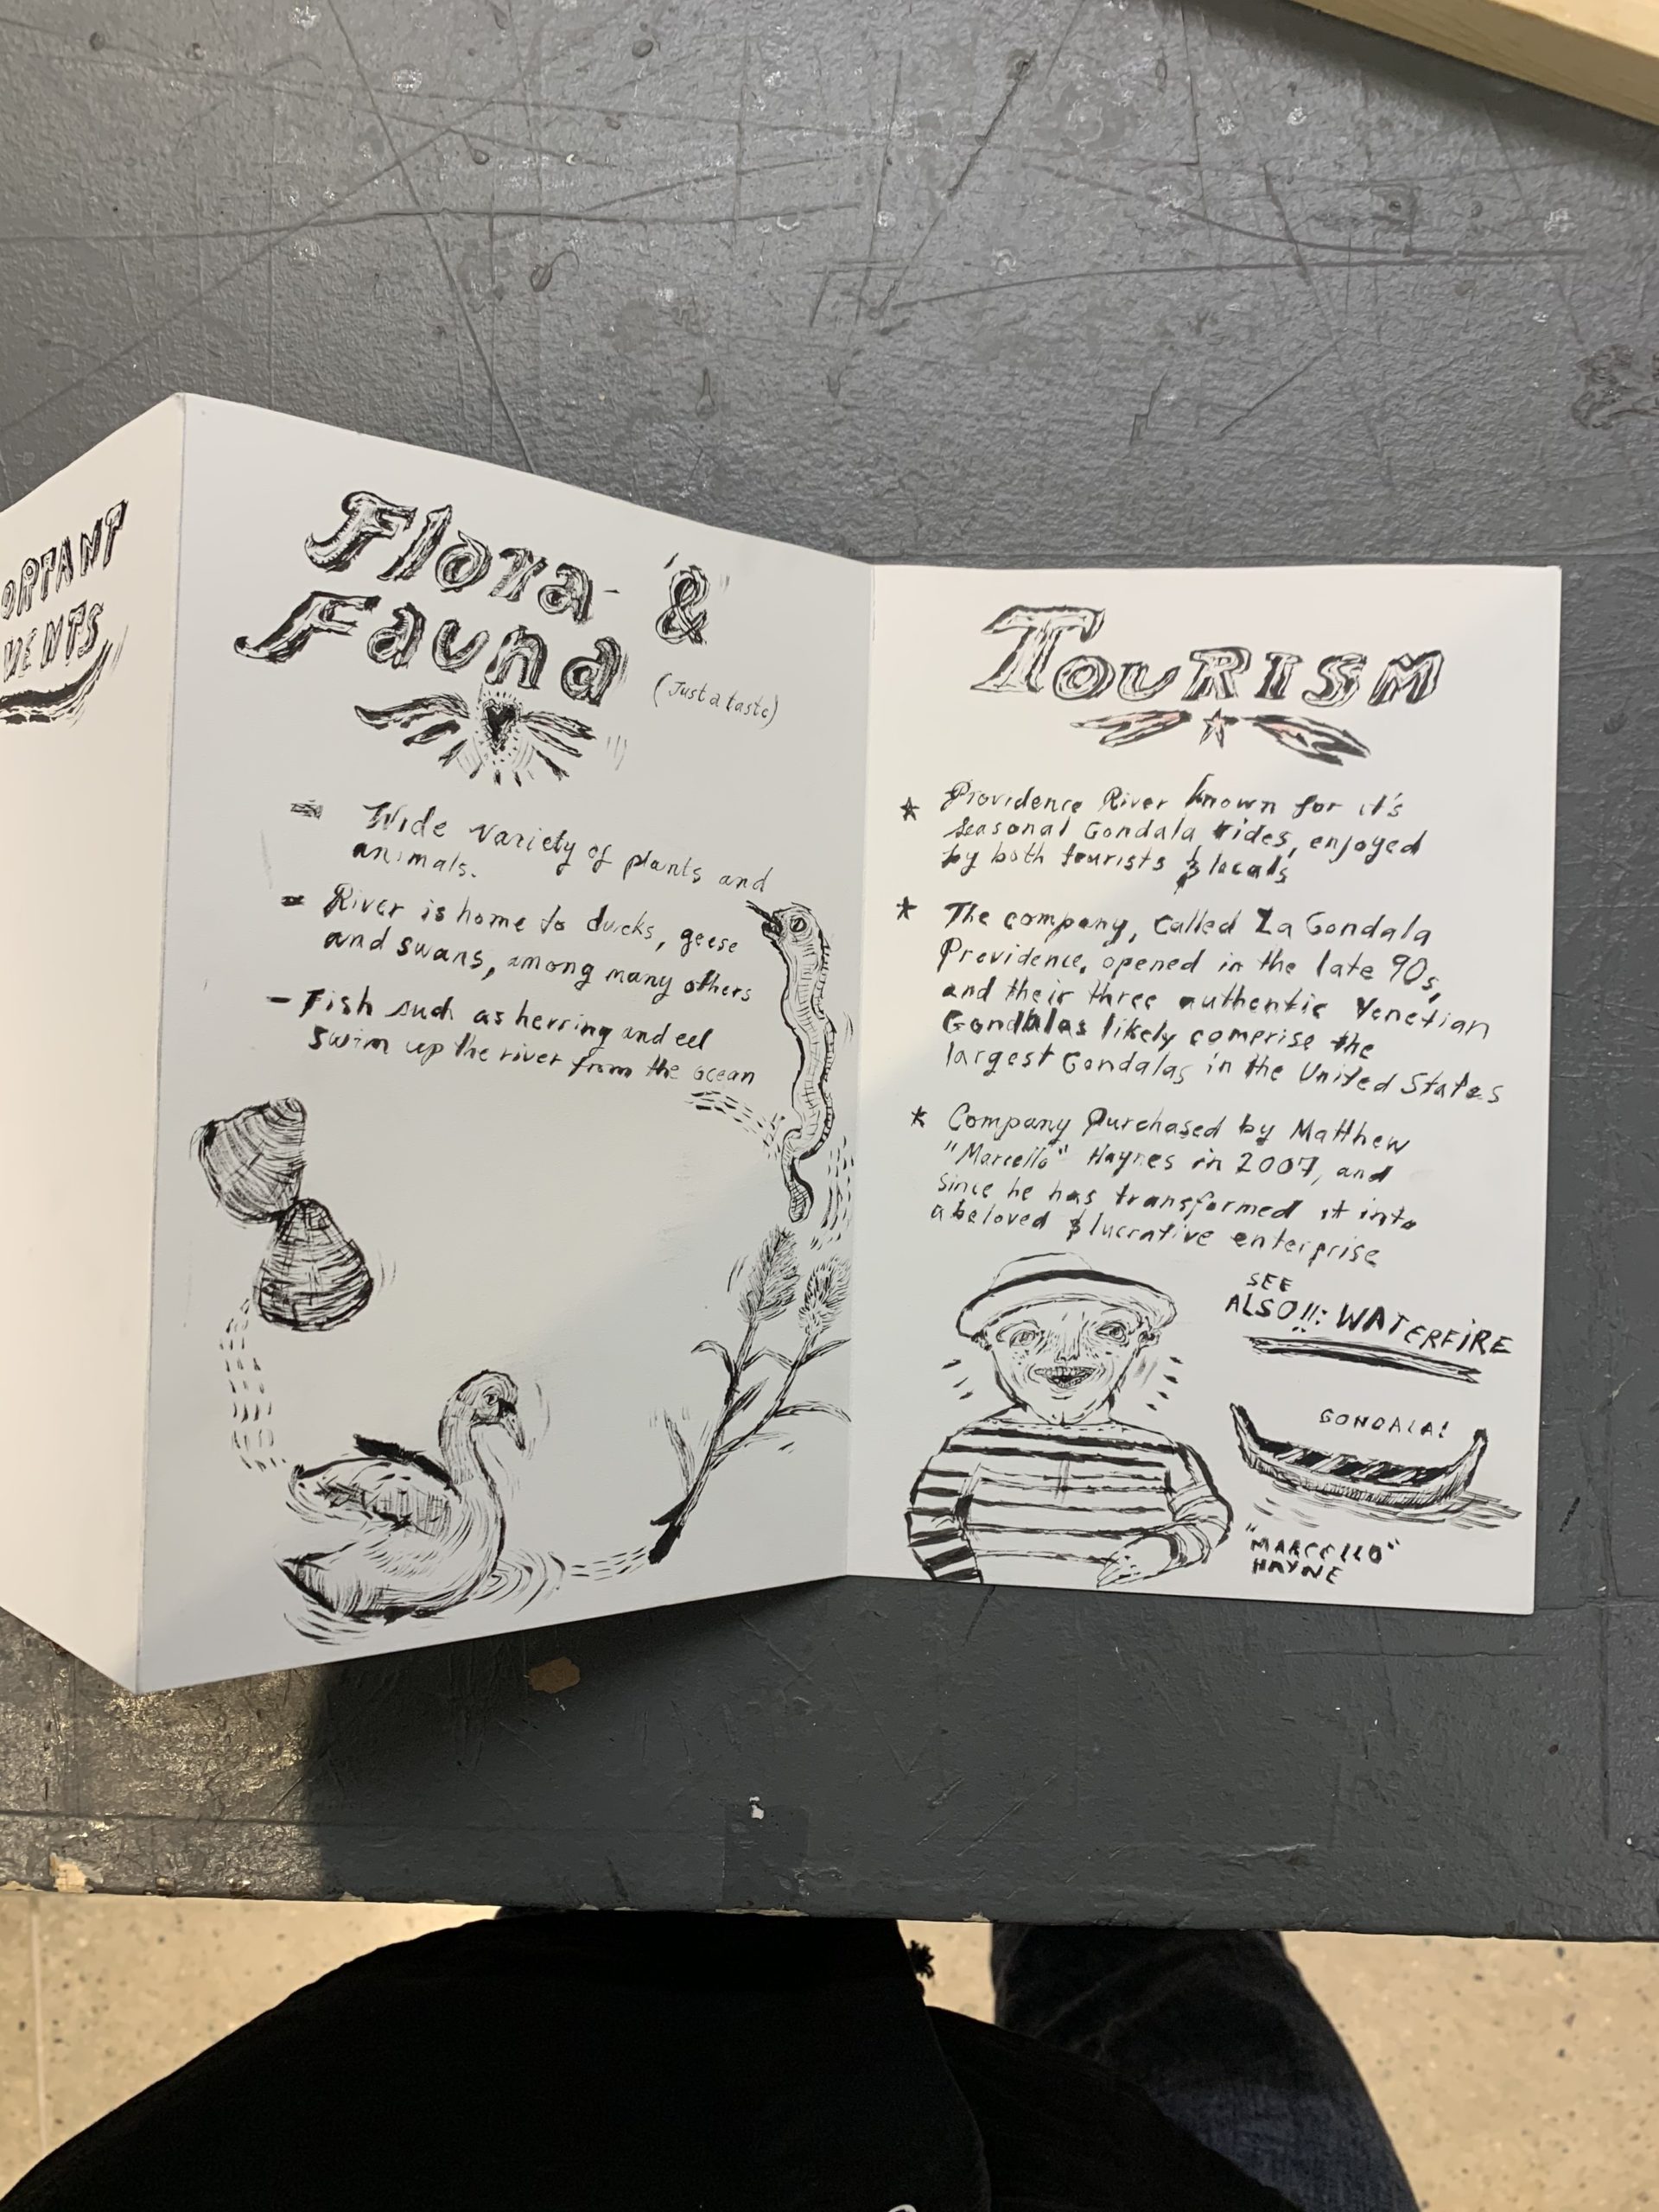 ORTANT
VENTS
Flora &
Fauna
(Just a taste)
Wide variety of plants and
animals.
River is home to ducks, geese
and swans, among many others
- Fish such as herring and eel
swim up the river from the ocean
TOURISM
* Providence River known for it's
seasonal Gondala rides, enjoyed
by both tourists & locals
* The company, called La Gondala
Providence, opened in the late 90s,
and their three authentic Venetian
Gondalas likely comprise the
largest Gondalas in the United States
* Company Purchased by Matthew
"Marcello" Haynes in 2007, and
since he has transformed it into
a beloved & lucrative enterprise
SEE
ALSO!!: WATERFIRE
GONDALA!
"MARCELLO"
HAYNE